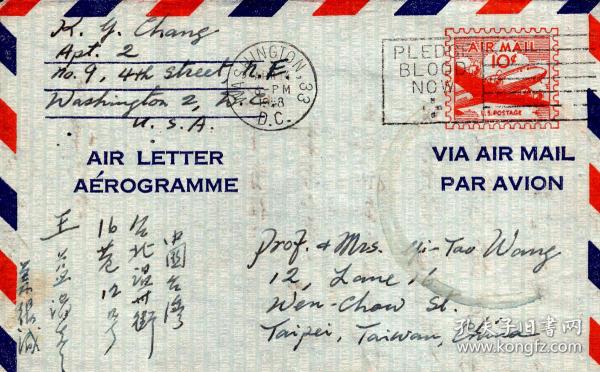 K. Y. Chang
Apt. 2
No. 9, 4th Street, N.E.
Washington 2, D.C.
U. S. A.
WASHINGTON, 33
PM
D.C.
PLEDGE
BLOOD
NOW
AIR MAIL
10¢
U.S. POSTAGE
AIR LETTER
AÉROGRAMME
VIA AIR MAIL
PAR AVION
Prof. & Mrs. Yi-Tao Wang
12, Lane 16
Wen-Chow St.
Taipei, Taiwan, China
中國台灣
台北溫州街
16巷12号
王
孔夫子旧书网
kongfz.com